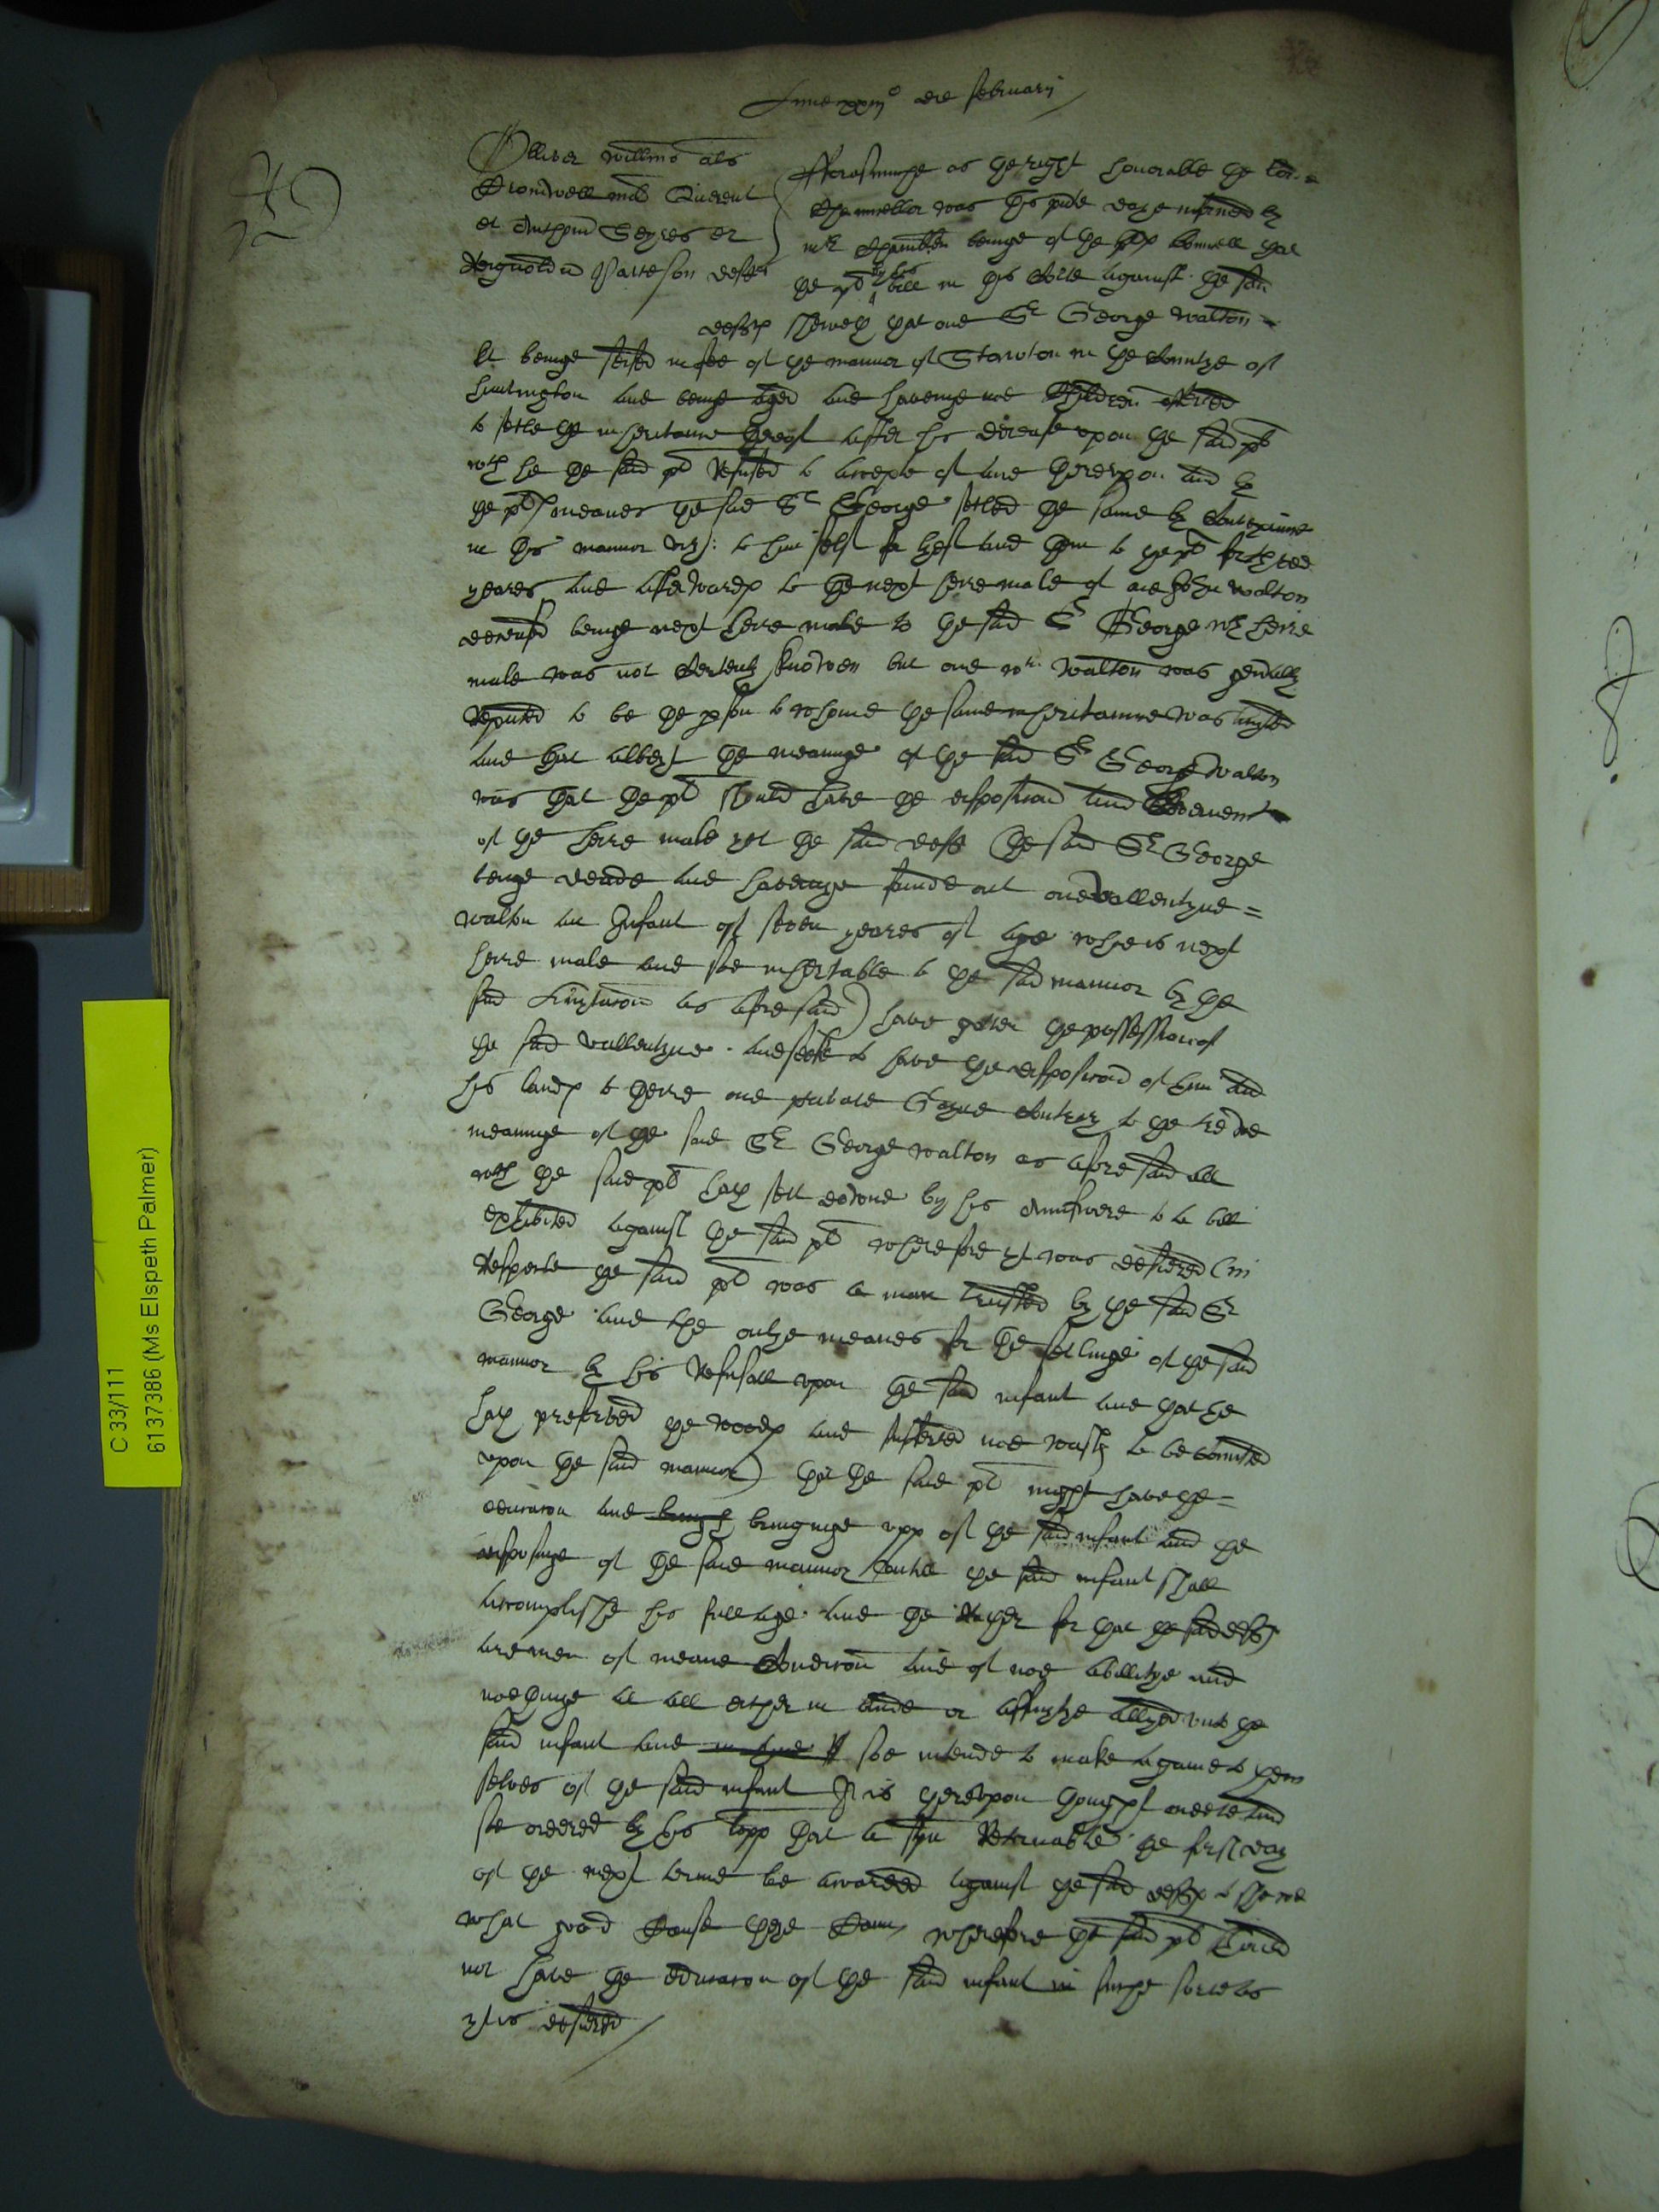 Lune xxiijo die februarij
Olliver Willms als
Cromwell mil Querent
et Anthoniu Seyres et
Reignoldu Patteson defts
Forasmuche as the right honorable the lor:
Chauncellor was this pnte daye informed by
mr Chamblen beinge of the plts Counsell that
the plt by his bill in this Courte against the said
defts sheweth that one Sr George Walton
kt beinge seised in fee of the mannor of Staunton in the Countye of
huntington and beinge aged and haveinge noe Children offered
to setle the inheritance thereof after his decease upon the said plt
wch he the said plt Refused to accepte of and thereupon and by
the plts meanes the said Sr George setled the same by Conveyance
in this manner viz: to him self for lyef and then to the plt for
yeares and afterwards to the next heire male of one John Walton
deceased beinge next heire male to the said Sr George wch heire
male was not Certenly knowen but one Wm Walton was genally
Reputed to be the pson to whome the same inheritance was lymited
and that albeyt the meaninge of the said Sr George Walton
was that the plt should have the disposicon and
of the heire male yet the said defts (the said Sr George
beinge deade and haveinge founde out one Vallentyne =
Walton an Infant of seven yeares of age whoe is next
heire male and soe inheritable to the said mannor by the
said lymitacon as aforesaid) have gotten the possession of
the said Vallentyne and seeke to have the disposicon of him and
his lands to theire owne private Gayne Contrary to the trewe
meaninge of the said Sr George Walton as aforesaid all
wch the said plt hath sett downe by his Aunswere to a bill
exhibited against the said plt wherefore yt was desiered (in
Respecte the said plt was a man trusted by the said Sr
George and the onlye meanes for the setlinge of the said
mannor by his Refusall upon the said infant and that he
hath preserved the woods and suffered noe wast to be comitted
upon the said mannor) that the said plt might have the =
educacon and bringinge upp of the said infant and the
disposinge of the said mannor untill the said infant shall
accomplishe his full age and the Rather for that the said defts
are men of meane Condicon and of noe abillitye and
noethinge at all either in kinde or affinitye allyed unto the
said infant and soe intende to make againe to them
selves of the said infant It is thereupon thought meete and
soe ordered by his lopp that a spa Retornable the first day
of the next terme be awarded against the said defts to shewe
what good Cause they Cann wherefore the said plt should
not have the educacon of the said infant in suche sorte as
yt is desiered
C 33/111
6137386 (Ms Elspeth Palmer)